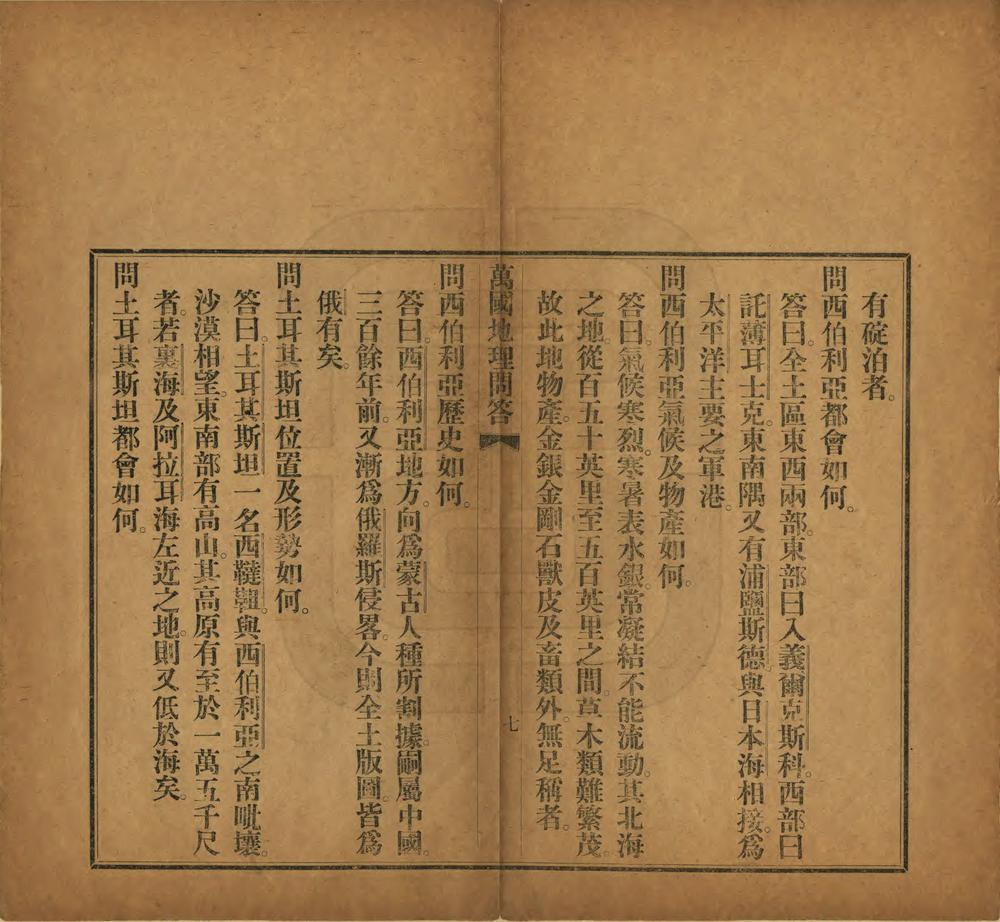 有碇泊者。
問西伯利亞都會如何。
答曰。全土區東西兩部。東部曰入義爾克斯科。西部曰
託薄耳土克。東南隅又有浦鹽斯德。與日本海相接。爲
太平洋主要之軍港。
問西伯利亞氣候及物產如何。
答曰。氣候寒烈。寒暑表水銀。常凝結不能流動。其北海
之地。從百五十英里至五百英里之間。草木類難繁茂。
故此地物產。金銀金剛石獸皮及畜類外。無足稱者。
萬國地理問答
七
問西伯利亞歷史如何。
答曰。西伯利亞地方。向爲蒙古人種所割據。嗣屬中國。
三百餘年前。又漸爲俄羅斯侵畧。今則全土版圖。皆爲
俄有矣。
問土耳其斯坦位置及形勢如何。
答曰。土耳其斯坦一名西韃靼。與西伯利亞之南毗壤。
沙漠相望。東南部有高山。其高原有至於一萬五千尺
者。若裏海及阿拉耳海左近之地。則又低於海矣。
問土耳其斯坦都會如何。